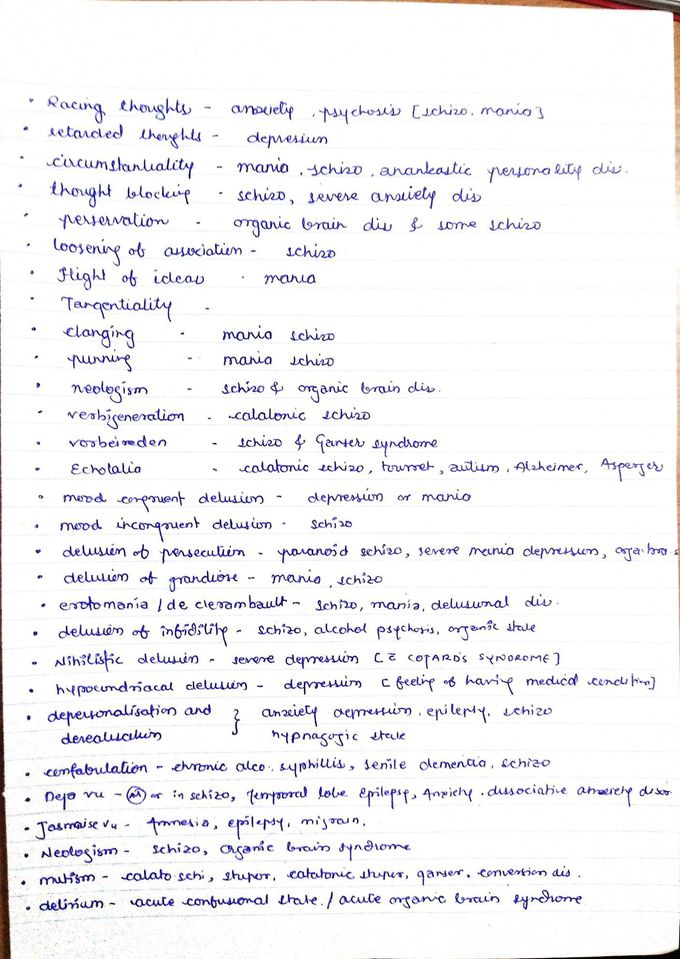 • Racing thoughts - anxiety, psychosis [schizo, mania]
• retarded thoughts - depression
• circumstantiality - mania, schizo, anankastic personality dis.
• thought blocking - schizo, severe anxiety dis
• perservation - organic brain dis & some schizo
• loosening of association - schizo
• Flight of ideas - mania
• Tangentiality -
• clanging - mania schizo
• punning - mania schizo
• neologism - schizo & organic brain dis.
• verbigeneration - catatonic schizo
• vorbeireden - schizo & Ganser syndrome
• Echolalia - catatonic schizo, tourret, autism, Alzheimer, Asperger
• mood congruent delusion - depression or mania
• mood incongruent delusion - schizo
• delusion of persecution - paranoid schizo, severe mania depression, orga. bra. s
• delusion of grandiose - mania, schizo
• erotomania / de clerambault - schizo, mania, delusional dis.
• delusion of infidility - schizo, alcohol psychosis, organic state
• Nihilistic delusion - severe depression [ c̄ COTARD'S SYNDROME ]
• hypocondriacal delusion - depression [ feeling of having medical condition]
• depersonalisation and } anxiety depression, epilepsy, schizo
derealisation hypnagogic state
• confabulation - chronic alco. syphillis, senile dementia, schizo
• Deja vu - (N) or in schizo, temporal lobe epilepsy, Anxiety, dissociative anxiety disor
• Jasmaise vu - Amnesia, epilepsy, migrain,
• Neologism - schizo, organic brain syndrome
• mutism - catato schi, stupor, catatonic stupor, ganser, conversion dis.
• delirium - acute confusional state / acute organic brain syndrome